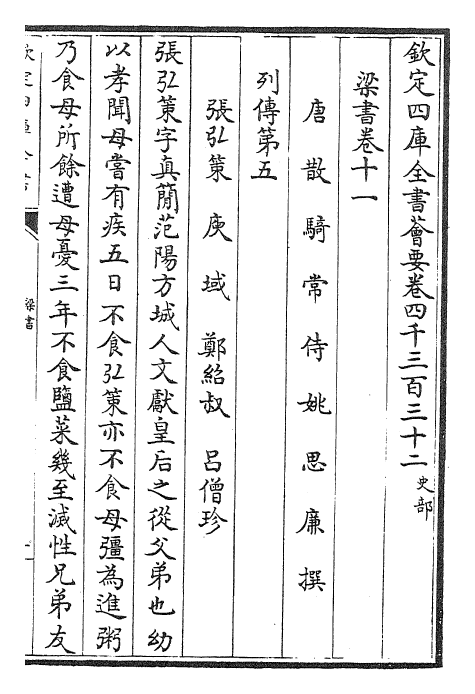 欽定四庫全書薈要卷四千三百三十二 史部
梁書卷十一
唐散騎常侍姚思廉撰
列傳第五
張弘策 庾域 鄭紹叔 呂僧珍
張弘策字真簡范陽方城人文獻皇后之從父弟也幼
以孝聞母嘗有疾五日不食弘策亦不食母彊為進粥
乃食母所餘遭母憂三年不食鹽菜幾至滅性兄弟友
梁書